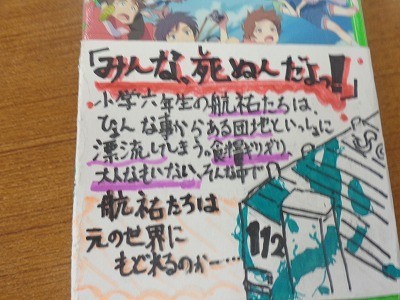 「みんな、死ぬんだよっ!」
小学六年生の航祐たちは、
ひょんな事からある団地といっしょに
漂流してしまう。食糧ギリギリ、
大人もいない、そんな中で
航祐たちは
元の世界に
もどれるのか……
112